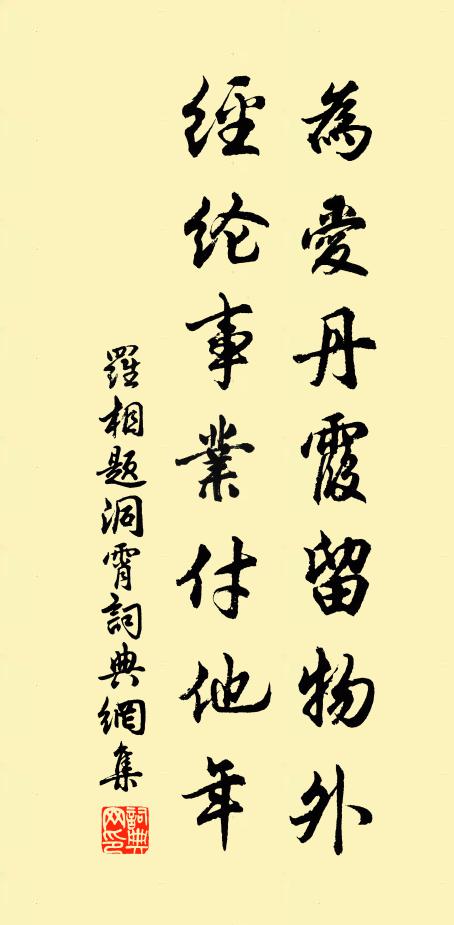 為愛丹霞留物外
經纶事業付他年
羅相题洞霄詞典網集
詞典網印